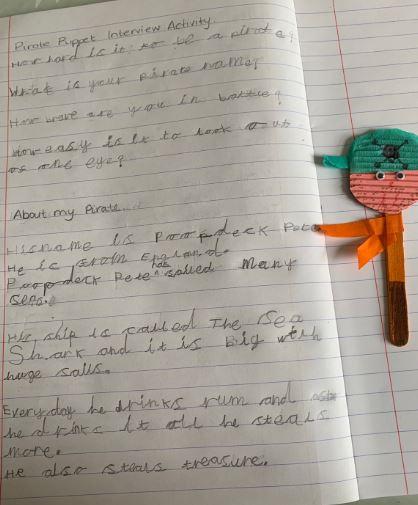 Pirate Puppet Interview Activity.
How hard is it to be a pirate?
What is your pirate name?
How brave are you in battle?
How easy is it to look out
of one eye?
About my Pirate...
His name is Poopdeck Pete
He is from England.
Poopdeck Pete has sailed Many
seas.
His ship is called The Sea
Shark and it is Big with
huge sails.
Every day he drinks rum and
he drinks it all he steals
more.
He also steals treasure.